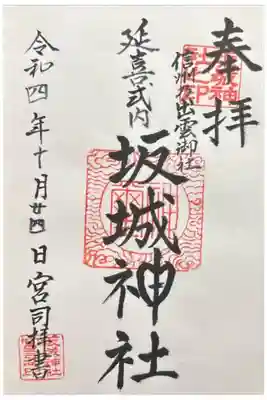 奉拝
信州乃出雲御社
延喜式内
坂城神社
令和四年十月廿四日宮司拝書